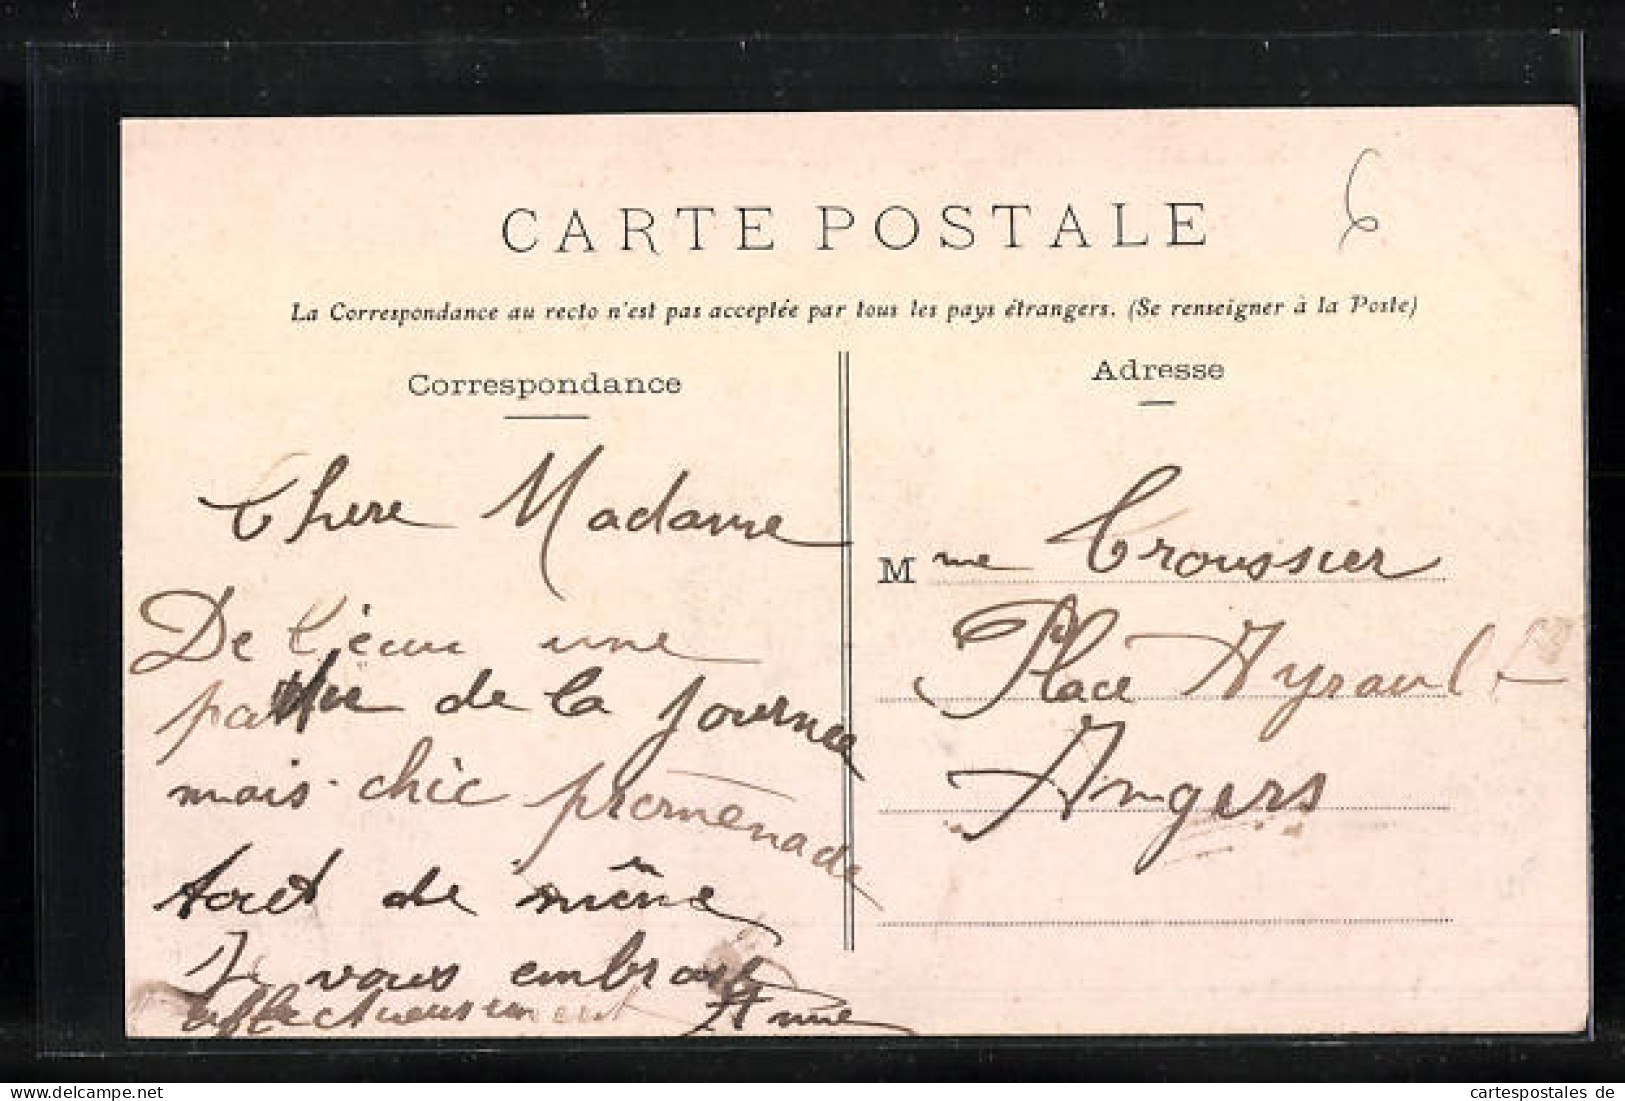 6
CARTE POSTALE
La Correspondance au recto n'est pas acceptée par tous les pays étrangers. (Se renseigner à la Poste)
Correspondance
Chere Madame
De l'eau une
partie de la journee
mais chic promenade
tout de même
Je vous embrasse
affectueusement Anne
Adresse
Mme Troussier
Place Ayrault
Angers
cartespostales de